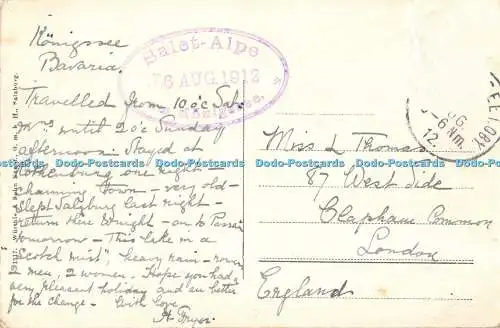 Königssee
Bavaria.
Salet-Alpe
6 AUG 1912
Travelled from 10 o'c Sat.
until 2 o'c Sunday
afternoon. Stayed at
Rothenburg one night -
charming town - very old -
slept Salzburg last night -
return there tonight - on to Passau
tomorrow - This lake in a
"Scotch mist", heavy rain -
men, 2 women. Hope you had a
very pleasant holiday and are better
for the change. With love
Miss L Thomas
87 West Side
Clapham Common
London
England
Dodo-Postcards Dodo-Postcards Dodo-Postcards Dodo-Postcards